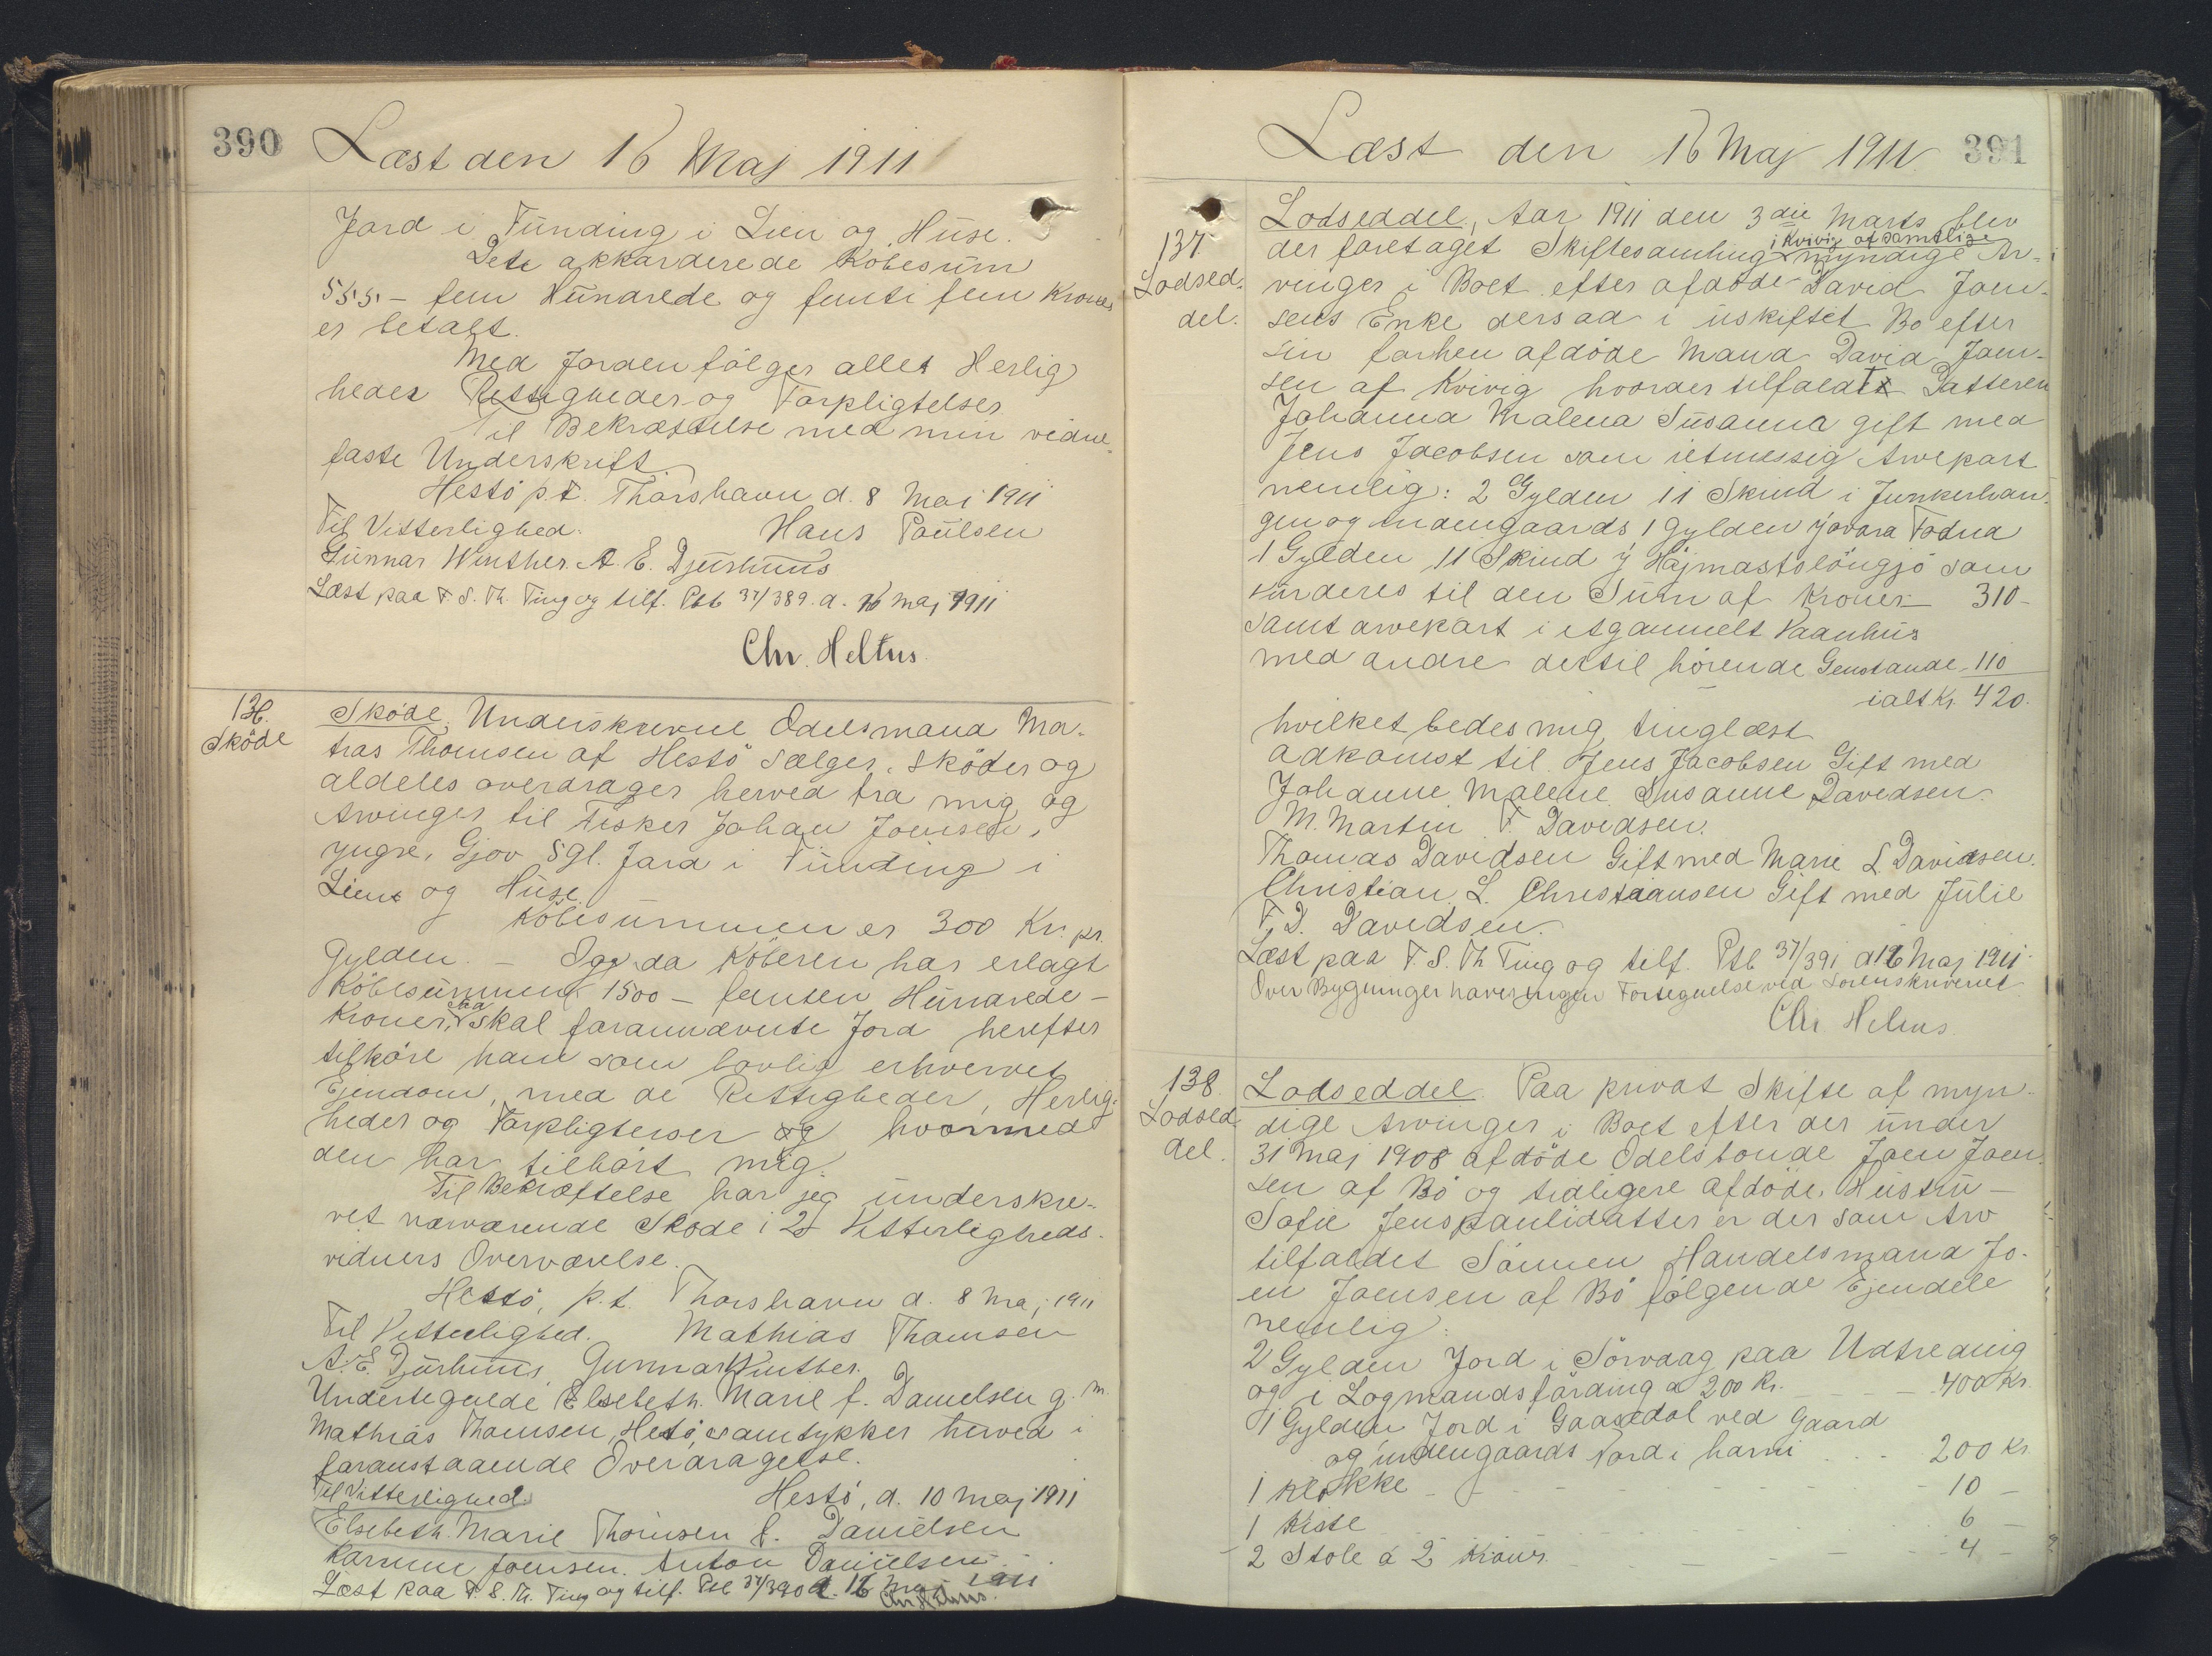 390
Læst den 16 Maj 1911
Jord i Funding i Lien og Huse.
Dete akkorderede Köbesum
555 - fem Hundrede og femti fem Kroner
er betalt.
Med Jorden fölger allet Herlig
heder Rettigheder og Forpligtelser
Til Bekræftelse med min vidne
faste Underskrift.
Hestö p.t. Thorshavn d. 8 Mai 1911
Til Vitterlighed. Hans Poulsen
Gunnar Winther. A. E. Djurhuus
Læst paa F. S. Th. Ting og tilf. Ptb 37/389. d. 16 maj 1911
Chr. Heltns.
136.
Sköde
Sköde. Underskrevne Odelsmand Ma-
tras Thomsen af Hestö sælger, sköder og
aldeles overdrager herved fra mig og
Arvinger til Fisker Johan Joensen,
yngre, Gjov 5 gl. Jord i Funding i
Lien og Huse.
Köbesummen er 300 Kr. pr.
Gylden. - Og da Köberen har erlagt
Köbesummen 1500 - femten Hundrede -
Kroner, skal forannævnte Jord herefter
tilhöre ham som lovlig erhvervet
Ejendom, med de Rettigheder, Herlig-
heder og Forpligtelser og hvormed
den har tilhört mig.
Til Bekræftelse har jeg underskre-
vet nærværende Sköde i 2 Vitterligheds-
vidners Overværelse.
Hestö, p.t. Thorshavn d. 8 Maj 1911
Til Vitterlighed. Mathias Thomsen
A. E. Djurhuus. Gunnar Winther.
Undertegnede Elsebeth Marie f. Danielsen g. m.
Mathias Thomsen, Hestö, samtykker herved i
foranstaaende Overdragelse.
Til Vitterlighed. Hestö, d. 10 maj 1911
Elsebeth Marie Thomsen f. Danielsen
Joensen. Anton Danielsen
Læst paa F. S. Th. Ting og tilf. Ptb 37/390 d. 16 Maj 1911
Chr Heltns.
Læst den 16 Maj 1911
391
137.
Lodsed-
del.
Lodseddel, Aar 1911 den 3 die Marts blev
der foretaget Skiftesamling i Kvivig af samtlige myndige Ar-
vinger i Boet efter afdöde David Joen-
sens Enke dersad i uskiftet Bo efter
sin forhen afdöde Mand David Joen-
sen af Kvivig hvorder tilfaldt Datteren
Johanna Malena Susanna gift med
Jens Jacobsen som retmessig Arvepart
nemlig: 2 Gylden 11 Skind i Junkerhau
gen og Indengaards, 1 Gylden Fodna
1 Gylden 11 Skind y Hájmastolöngjö som
vurderes til den Sum af Kroner - 310 -
samt arvepart i etgammelt Vaanhus
med andre dertil hörende Genstande - 110
ialt Kr 420.
hvilket bedes mig tinglæst
adkomst til Jens Jacobsen Gift med
Johanne Malene Susanne Davidsen.
M. Martin F. Davidsen.
Thomas Davidsen Gift med Marie S Davidsen.
Christian L. Christiansen Gift med Julie
F. D. Davidsen.
Læst paa F. S. Th Ting og tilf. Ptb 37/391 d 16 Maj 1911
Over Bygninger haves ingen Fortegnelse ved Sorenskriveriet
Chr. Heltns.
138.
Lodsed
del.
Lodseddel. Paa privat Skifte af myn-
dige Arvinger i Boet efter der under
31 Maj 1908 afdöde Odelsbonde Joen Joen
sen af Bö og tidligere afdöde Hustru -
Sofie Jenspaulidatter er der som Arv
tilfaldet Sönnen Handelsmand Jo-
en Joensen af Bö fölgende Ejendele
nemlig:
2 Gylden Jord i Sörvaag paa Udtrednig
og i Logmandsförding a 200 Kr. - - - 400 Kr.
1 Gylden Jord i Gaasedal ved Gaard
og indengaards Nord i hami - - - 200 Kr
1 Klokke - - - 10 -
1 Kiste - - - 6 -
2 Stole á 2 Kroner. - - - 4 -